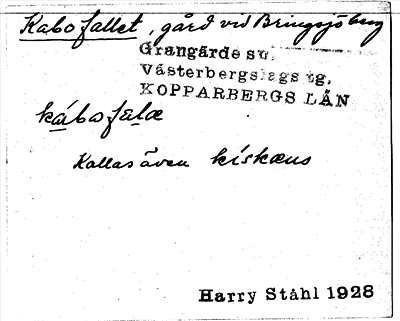 Kabofallet, gård vid Bringsjöberg
Grangärde sn.
Västerbergslags tg.
KOPPARBERGS LÄN
kábofalæ
Kallas även kískæns
Harry Ståhl 1928